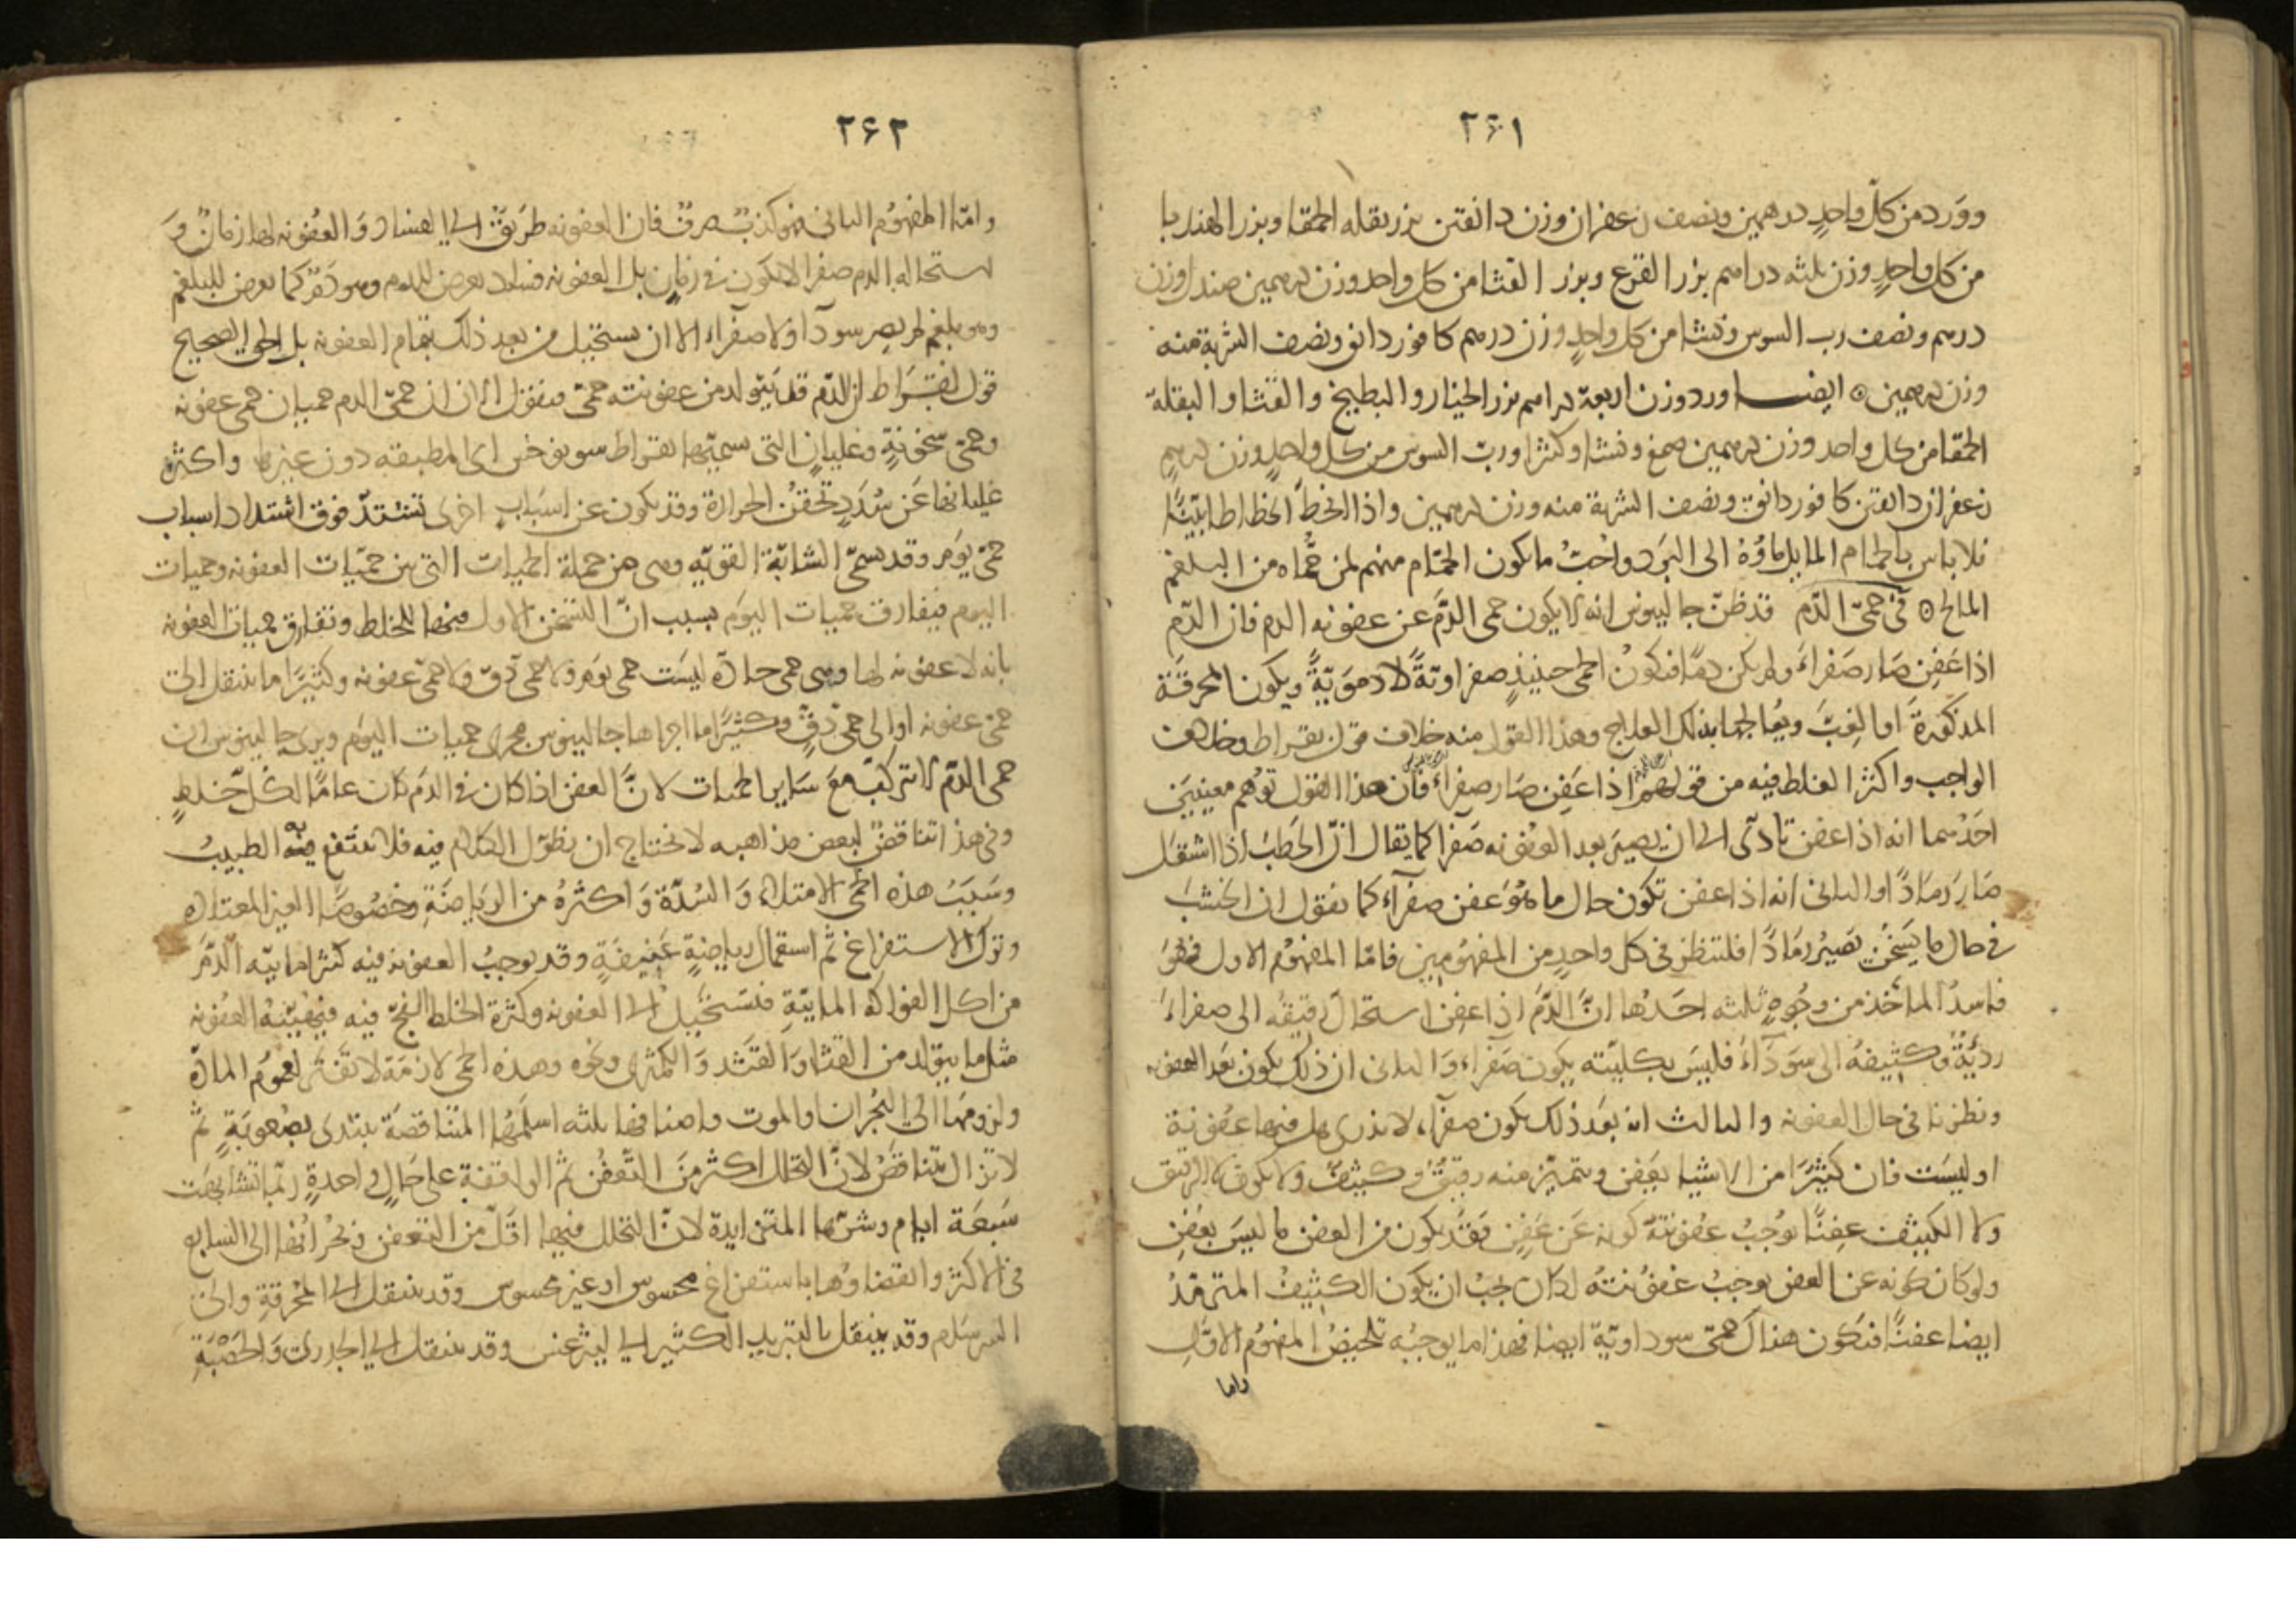 ٢٦١
وورد من كل واحدٍ درهمين ونصف زعفران وزن دانقتن بزر بقله الحمقا وبزر الهندبا
من كل واحدٍ وزن ثلثه دراهم بزر القرع وبزر القثا من كل واحد وزن درهمين صندل وزن
درهم ونصف رب السوس ونشا من كل واحدٍ وزن درهم كافور دانق ونصف الشربة منه
وزن درهمين ايضا ورد وزن اربعة دراهم بزر الخيار والبطيخ والقثا والبقلة
الحمقا من كل واحد وزن درهمين صمغ ونشا وكثيرا ورب السوس من كل واحدٍ وزن درهمٍ
زعفران دانقتن كافور دانق ونصف الشربة منه وزن درهمين واذا انحط انحطاطا بيّنًا
فلا باس بالحمام المايل ماؤه الى البَرَد واحبّ ما يكون الحمّام منهم لمن حُمّاه من البلغم
المالح في حمى الدّم قد ظنّ جالينوس انه لا يكون حمى الدّم عن عفونه الدم فان الدّم
اذا عَفِن صَار صَفراءَ ولم يكن دمًا فتكونُ الحمى حينيذٍ صفراويّةً لا دمَويّةً ويكون المحرقَة
المذكورةَ او الغِبَّ ويُعالجها بذلك العلاج وهذا القول منه خلاف قول بقراط وخلاف
الواجب واكثر الغلط فيه من قولهم اذا عَفِن صَار صفراءَ فان هذا القول توهم معنيين
احدُهما انه اذا عفن تادّى الى ان يصيرَ بعد العُفونه صَفرا كما يقال انّ الحَطبَ اذا اشتعَل
صَار رَمادًا والثانى انه اذا عفن تكون حال ما هُوَ عفن صفرآءَ كما نقول ان الخشب
فى حال ما يَسخُن يَصيرُ رمَادًا فلننظر فى كل واحدٍ من المفهُومين فامّا المفهُوم الاول فهوَ
فاسدُ الماخَذ من وجُوهٍ ثلثه احَدُها انّ الدَّمَ اذا عفِن استحالَ رقيقُه الى صفراءَ
رديّةٍ وكثيفهُ الى سَوداءَ فليسَ بكليّته يكون صَفراءَ وَالثانى ان ذلك يكون بَعد العفونه
ونظرنا فى حال العفونه والثالث انه بعَد ذلك يكون صفرآءَ لا يدرى هل فيها عفونة
اوليسَت فان كثيرَا من الاشيا يعَفِن ويتميّز منه رقيقٌ وكثيفٌ ولا يكون الرقيق
ولا الكثيف عفِنًا يوُجبُ عفونتهُ كونه عَن عَفِنٍ فقَد يكون من العفن ما ليسَ بعَفِنٍ
ولو كان كونه عن العفن يوجبُ عَفونتهُ لكان يجبُ ان يكون الكثيفُ المترمّدُ
ايضا عفنًا فتكون هناك حمّى سوداويّة ايضا فهذا ما يوجبُه تلخيصُ المفهُوم الاول
واما
٢٦٢
وامّا المفهُوم الثانى فهو كذبٌ صرفٌ فان العفونه طرَيقٌ الى الفساد وَالعُفونه لها زمانٌ وَ
استحاله الدم صفرا لا يكون فى زمانٍ بل العفونه فساد يعرض للدم وهو دمٌ كما يعرض للبلغم
وهو بلغم لم يصر سودآ ولا صفراءَ الا ان يستحيل من بعد ذلك بتمام العفونه بل الحق الصحيح
قول بقراط ان الدّم قد يَتولد من عفونته حمّى فنقول الان ان حمّى الدم حميان حمى عفونه
وحمّى سخونةٍ وغليانٍ التى سميها بقراط سونوخس اى المطبقه دون غيرها واكثر
غليانها عَن سُدَدٍ تحقنُ الحرارة وقد يكون عن اسبَابٍ اخرى تشتدّ فوق اشتداد اسباب
حمّى يوَم وقد يسمّى الشابّة القويّه وهى من جملة الحميات التى بين حميّات العفونه وحميات
اليوم فيفارق حميات اليوَم بسبب انّ التسخن الاول فيها للخلط وتفارق حميات العفونه
بانه لا عفونه لها وهى حمى حادّه ليسَت حمى يوَم ولا حمى دّق ولا حمّى عفونه وكثيَرًا ما ينتقل الى
حمّى عفونه او الى حمّى دقٍ وكثيَرًا ما اجراها جالينوس مجرى حميات اليوَم ويرى جالينوس ان
حمى الدّم لا تتركب مَع سَاير الحميات لانَّ العفن اذا كان فى الدَم كان عامًا لكُل خلطٍ
وفى هذا تناقضٌ لبعض مذاهبه لا نحتاج ان نطوّل الكلام فيه فلا ينتفع به الطبيبُ
وسَبَبُ هذه الحمّى الامتلاءُ وَالسُدّة وَاكثرُه من الريَاضَةِ وخصُوصًا الغير المعتاده
وترك الاستفراغ ثم استعمال رياضةٍ عَنيفةٍ وقد يوجبُ العفونه فيه كثرة مائيّه الدَّمَ
من اكل الفواكه المائيّةِ فتسَتحَيلُ الى العفونه وكثرة الخلط الفجّ فيه فتهيّئهُ العُفونه
مثل ما يتولد من القثا وَالقثد وَالكمثرى ونحوه وهذه الحمى لازمَة لا تفترُ لعموُم المادّه
ولزومها الى البُحران او الموت واصنافها ثلثه اسلمُها المتناقصَة يبتدى بصُعوبَةٍ ثم
لا تزال تتناقصُ لانّ التحلل اكثر منَ التَّعفُن ثم الواقفة على حَالٍ واحدةٍ ربّما تشابهَت
سَبعَة ايام وشرّها المتزايدة لانّ التحلل فيها اقَلّ من التعفن وبُحرانها الى السابع
فى الاكثر وانقضاوها باستفراغ محسوس او غير محسوس وقد ينتقل الى المحرقةِ والى
السرسَام وقد ينتقل بالتبريد الكثير الى ليثرغس وقد ينتقل الى الجدرى وَالحَصْبَةِ